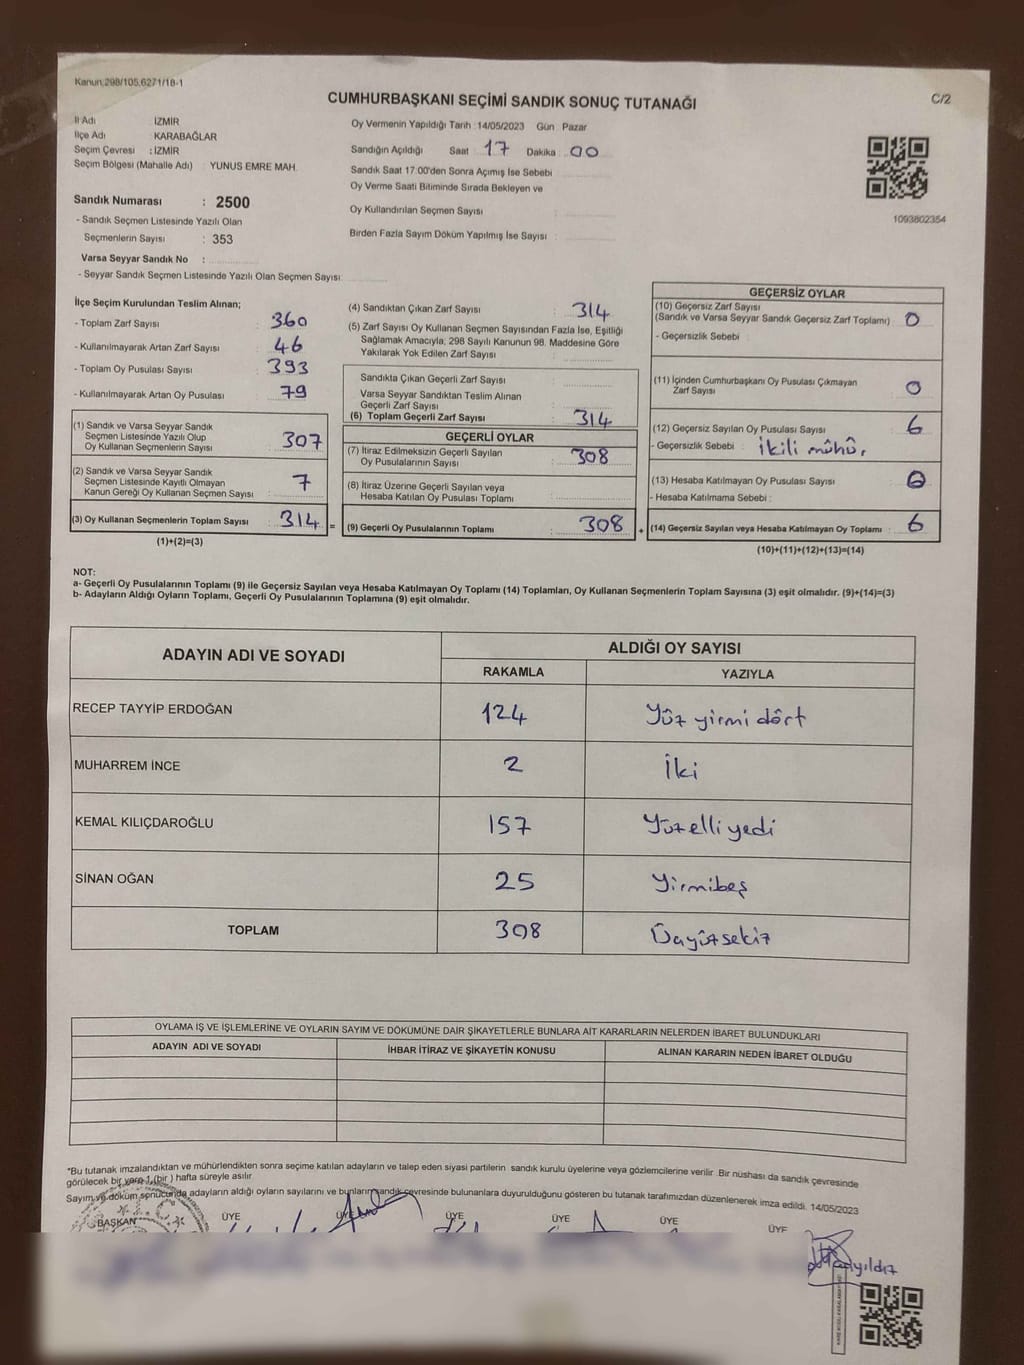 Kanun:298/105,6271/18-1
C/2
CUMHURBAŞKANI SEÇİMİ SANDIK SONUÇ TUTANAĞI
İl Adı İZMİR
İlçe Adı : KARABAĞLAR
Seçim Çevresi : İZMİR
Seçim Bölgesi (Mahalle Adı) : YUNUS EMRE MAH.
Sandık Numarası : 2500
- Sandık Seçmen Listesinde Yazılı Olan
Seçmenlerin Sayısı : 353
Varsa Seyyar Sandık No :
- Seyyar Sandık Seçmen Listesinde Yazılı Olan Seçmen Sayısı:
Oy Vermenin Yapıldığı Tarih :14/05/2023 Gün Pazar
Sandığın Açıldığı Saat 17 Dakika 00
Sandık Saat 17:00'den Sonra Açımış İse Sebebi
Oy Verme Saati Bitiminde Sırada Bekleyen ve
Oy Kullandırılan Seçmen Sayısı :
Birden Fazla Sayım Döküm Yapılmış İse Sayısı :
1093802354
İlçe Seçim Kurulundan Teslim Alınan;
- Toplam Zarf Sayısı : 360
- Kullanılmayarak Artan Zarf Sayısı : 46
- Toplam Oy Pusulası Sayısı : 393
- Kullanılmayarak Artan Oy Pusulası : 79
(1) Sandık ve Varsa Seyyar Sandık
Seçmen Listesinde Yazılı Olup
Oy Kullanan Seçmenlerin Sayısı : 307
(2) Sandık ve Varsa Seyyar Sandık
Seçmen Listesinde Kayıtlı Olmayan
Kanun Gereği Oy Kullanan Seçmen Sayısı : 7
(3) Oy Kullanan Seçmenlerin Toplam Sayısı : 314 =
(1)+(2)=(3)
(4) Sandıktan Çıkan Zarf Sayısı : 314
(5) Zarf Sayısı Oy Kullanan Seçmen Sayısından Fazla İse, Eşitliği
Sağlamak Amacıyla; 298 Sayılı Kanunun 98. Maddesine Göre
Yakılarak Yok Edilen Zarf Sayısı :
Sandıkta Çıkan Geçerli Zarf Sayısı :
Varsa Seyyar Sandıktan Teslim Alınan
Geçerli Zarf Sayısı :
(6) Toplam Geçerli Zarf Sayısı : 314
GEÇERLİ OYLAR
(7) İtiraz Edilmeksizin Geçerli Sayılan
Oy Pusulalarının Sayısı : 308
(8) İtiraz Üzerine Geçerli Sayılan veya
Hesaba Katılan Oy Pusulası Toplamı :
(9) Geçerli Oy Pusulalarının Toplamı : 308 +
GEÇERSİZ OYLAR
(10) Geçersiz Zarf Sayısı
(Sandık ve Varsa Seyyar Sandık Geçersiz Zarf Toplamı) : 0
- Geçersizlik Sebebi :
(11) İçinden Cumhurbaşkanı Oy Pusulası Çıkmayan
Zarf Sayısı : 0
(12) Geçersiz Sayılan Oy Pusulası Sayısı : 6
- Geçersizlik Sebebi : İkili mühür
(13) Hesaba Katılmayan Oy Pusulası Sayısı : 0
- Hesaba Katılmama Sebebi :
(14) Geçersiz Sayılan veya Hesaba Katılmayan Oy Toplamı : 6
(10)+(11)+(12)+(13)=(14)
NOT:
a- Geçerli Oy Pusulalarının Toplamı (9) ile Geçersiz Sayılan veya Hesaba Katılmayan Oy Toplamı (14) Toplamları, Oy Kullanan Seçmenlerin Toplam Sayısına (3) eşit olmalıdır. (9)+(14)=(3)
b- Adayların Aldığı Oyların Toplamı, Geçerli Oy Pusulalarının Toplamına (9) eşit olmalıdır.
ADAYIN ADI VE SOYADI
ALDIĞI OY SAYISI
RAKAMLA YAZIYLA
RECEP TAYYİP ERDOĞAN 124 Yüz yirmi dört
MUHARREM İNCE 2 İki
KEMAL KILIÇDAROĞLU 157 Yüzelli yedi
SİNAN OĞAN 25 Yirmibeş
TOPLAM 308 Üçyüzsekiz
OYLAMA İŞ VE İŞLEMLERİNE VE OYLARIN SAYIM VE DÖKÜMÜNE DAİR ŞİKAYETLERLE BUNLARA AİT KARARLARIN NELERDEN İBARET BULUNDUKLARI
ADAYIN ADI VE SOYADI İHBAR İTİRAZ VE ŞİKAYETİN KONUSU ALINAN KARARIN NEDEN İBARET OLDUĞU
*Bu tutanak imzalandıktan ve mühürlendikten sonra seçime katılan adayların ve talep eden siyasi partilerin sandık kurulu üyelerine veya gözlemcilerine verilir. Bir nüshası da sandık çevresinde
görülecek bir yere 1 (bir) hafta süreyle asılır.
Sayım ve döküm sonucunda adayların aldığı oyların sayılarını ve bunların sandık çevresinde bulunanlara duyurulduğunu gösteren bu tutanak tarafımızdan düzenlenerek imza edildi. 14/05/2023
BAŞKAN ÜYE ÜYE ÜYE ÜYE ÜYE ÜYE